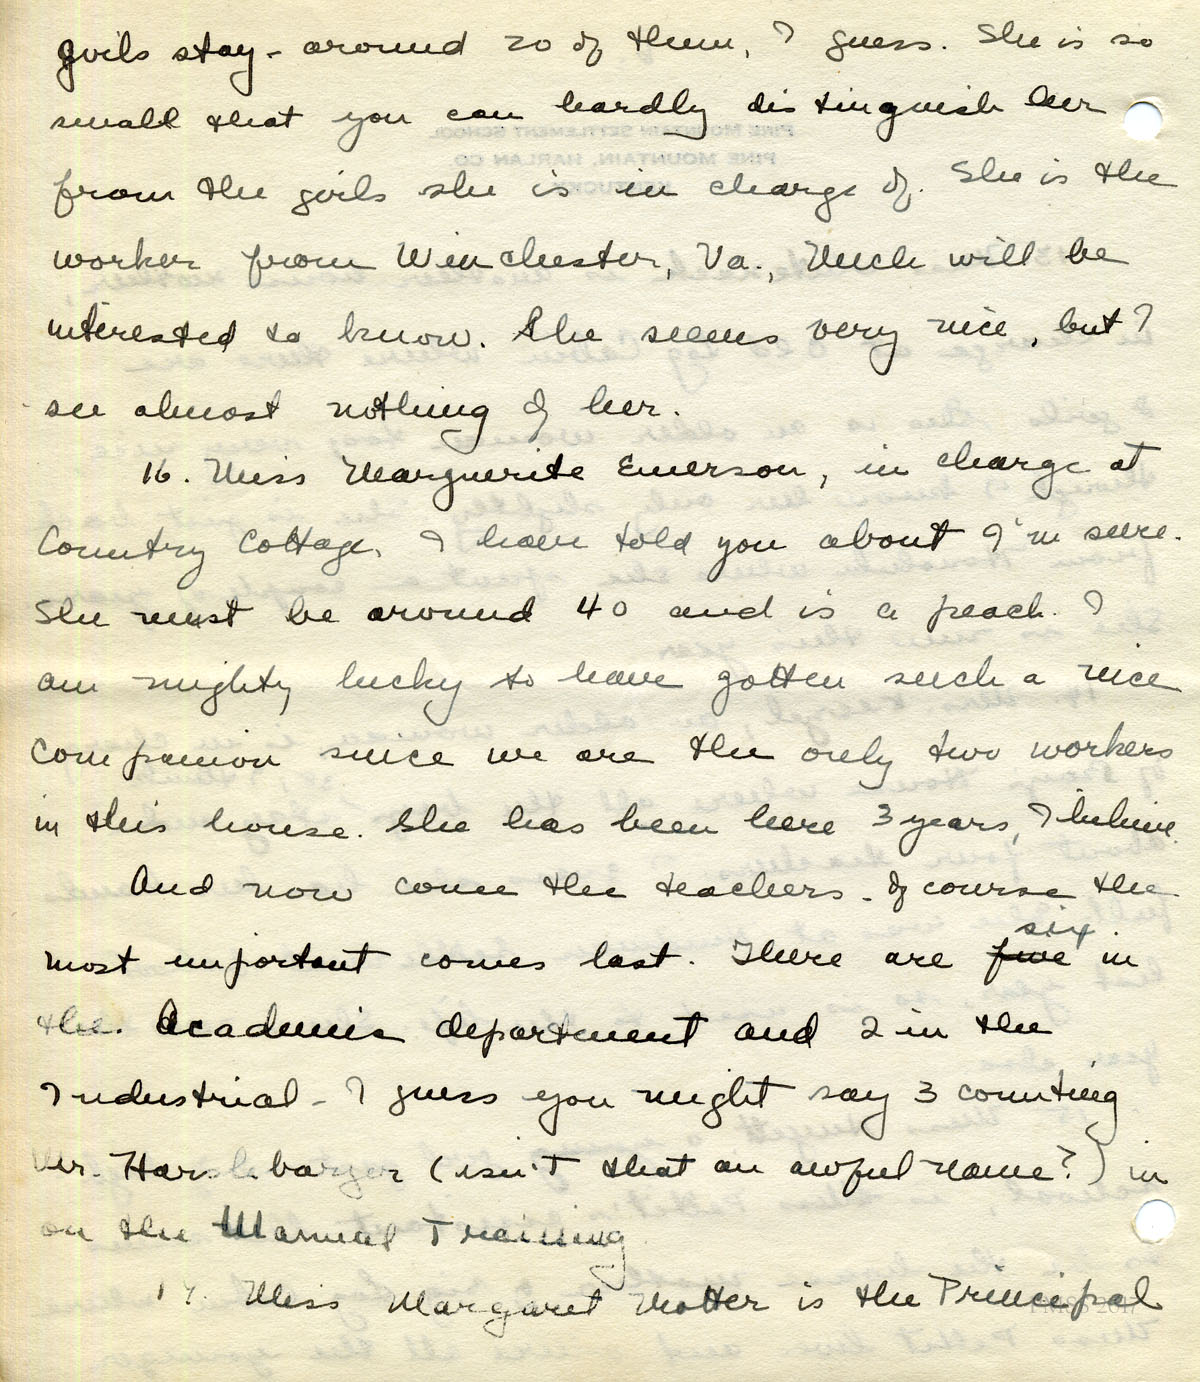 girls stay - around 20 of them, I guess. She is so
small that you can hardly distinguish her
from the girls she is in charge of. She is the
worker from Winchester, Va., Unch will be
interested to know. She seems very nice, but I
see almost nothing of her.
16. Miss Marguerite Emerson, in charge at
Country Cottage, I have told you about I'm sure.
She must be around 40 and is a peach. I
am mighty lucky to have gotten such a nice
companion since we are the only two workers
in this house. She has been here 3 years, I believe.
And now come the teachers - of course the
most important comes last. There are five six in
the Academic department and 2 in the
Industrial - I guess you might say 3 counting
Mr. Harshbarger (isn't that an awful name?) in
on the Manual Training
17. Miss Margaret Motter is the Principal
PINE MOUNTAIN SETTLEMENT SCHOOL
PINE MOUNTAIN, HARLAN CO.
KENTUCKY